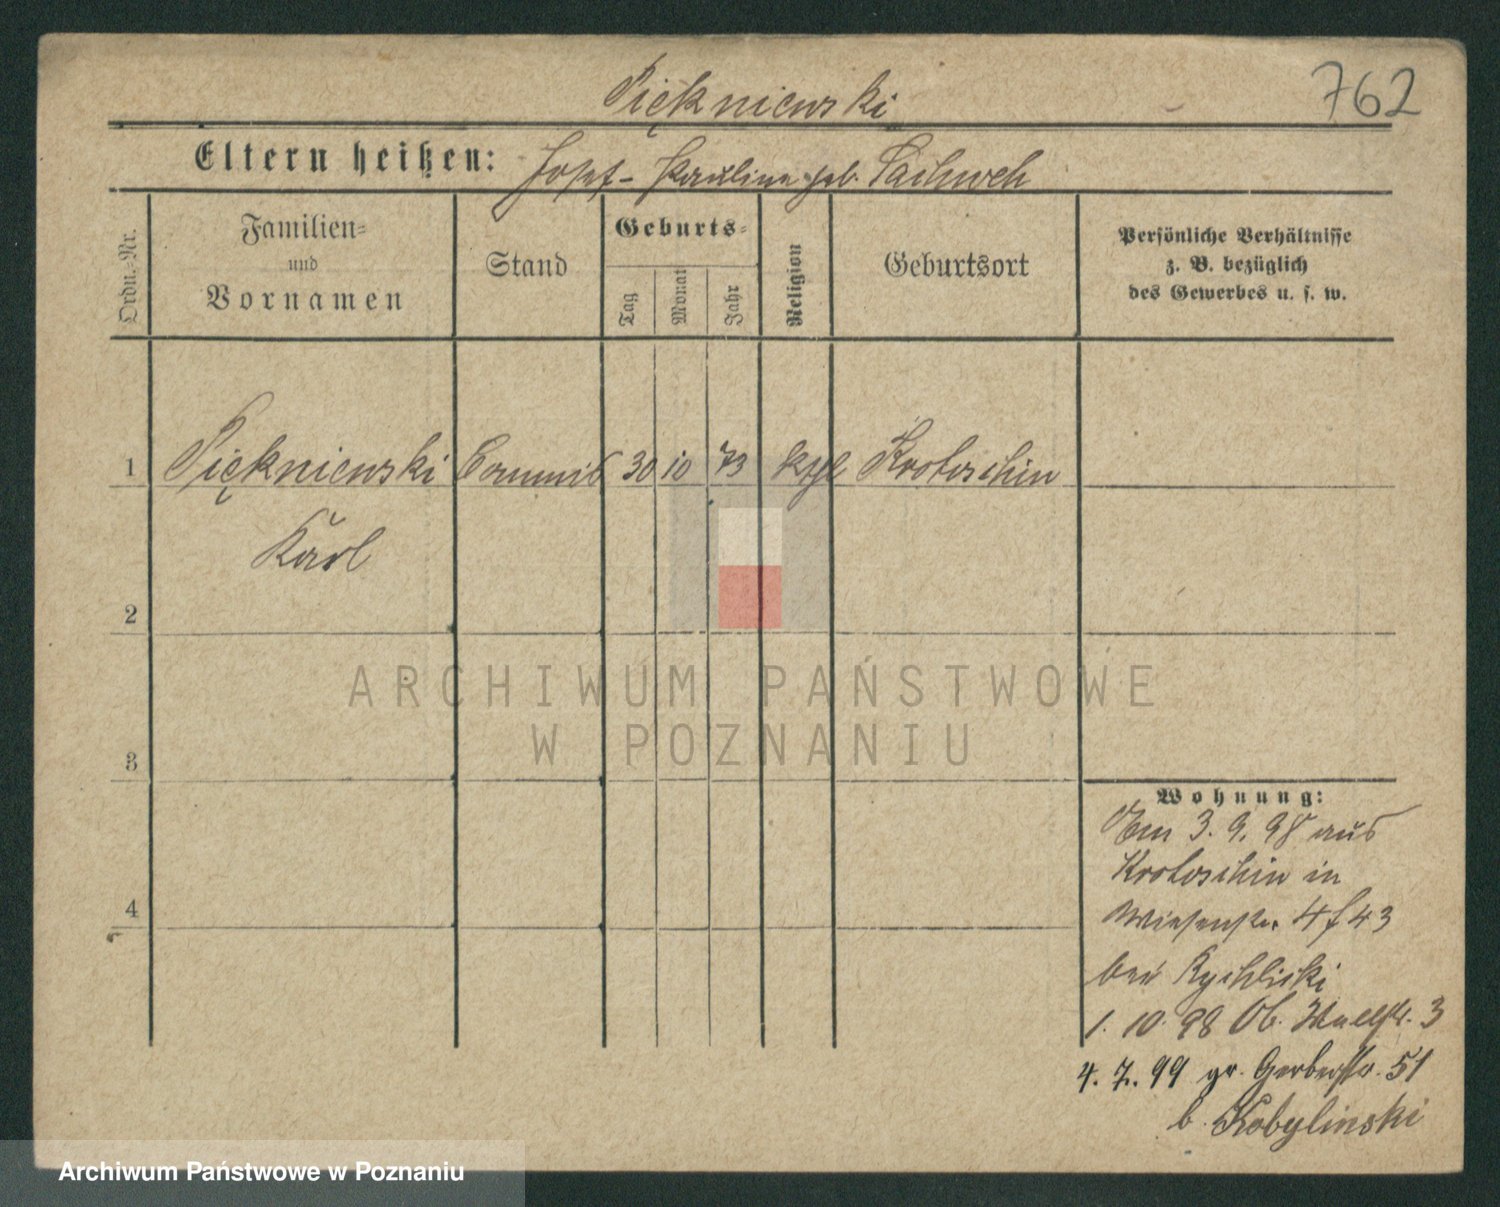 762
Piękniewski
Eltern heißen: Josef - Pauline geb. Sachweh
Ordn.-Nr.
Familien-
und
Vornamen
Stand
Geburts-
Tag
Monat
Jahr
Religion
Geburtsort
Persönliche Verhältnisse
z. B. bezüglich
des Gewerbes u. s. w.
1 Piękniewski Commis 30 10 73 kath Krotoschin
Karl
2
3
4
Wohnung:
Am 3. 9. 98 aus
Krotoschin in
Wiesenstr. 43
bei Rychlicki
1. 10. 98 Ob. Wallstr. 3
4. 7. 99 gr. Gerberstr. 51
b. Kobylinski
ARCHIWUM PAŃSTWOWE
W POZNANIU
Archiwum Państwowe w Poznaniu